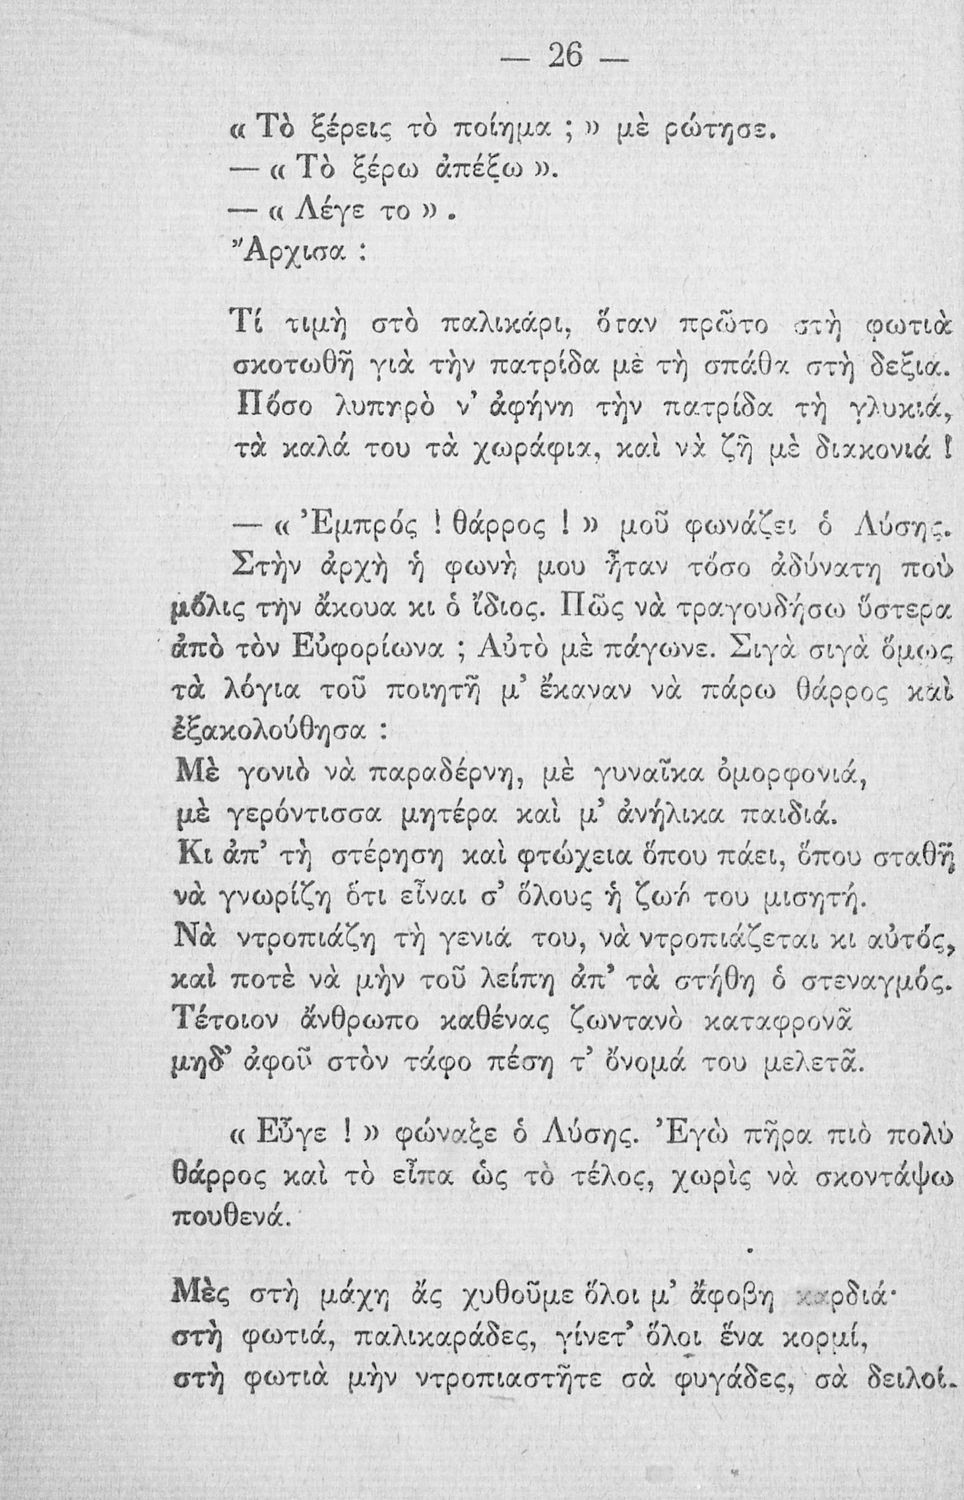 — 26 —
« Τὸ ξέρεις τὸ ποίημα ; » μὲ ρώτησε.
— « Τὸ ξέρω ἀπέξω ».
— « Λέγε το » .
Ἄρχισα :
Τί τιμὴ στὸ παλικάρι, ὅταν πρῶτο στὴ φωτιὰ
σκοτωθῆ γιὰ τὴν πατρίδα μὲ τὴ σπάθα στὴ δεξια.
Πόσο λυπηρὸ ν’ ἀφήνη τὴν πατρίδα τὴ γλυκιά,
τὰ καλά του τὰ χωράφια, καὶ νὰ ζῆ μὲ διακονιά !
— « Ἐμπρός ! θάρρος ! » μοῦ φωνάζει ὁ Λύσης.
Στὴν ἀρχὴ ἡ φωνή μου ἦταν τόσο ἀδύνατη ποὺ
μόλις τὴν ἄκουα κι ὁ ἴδιος. Πῶς νὰ τραγουδήσω ὕστερα
ἀπὸ τὸν Εὐφορίωνα ; Αὐτὸ μὲ πάγωνε. Σιγὰ σιγὰ ὅμως
τὰ λόγια τοῦ ποιητῆ μ’ ἔκαναν νὰ πάρω θάρρος καὶ
ἐξακολούθησα :
Μὲ γονιὸ νὰ παραδέρνη, μὲ γυναῖκα ὀμορφονιά,
μὲ γερόντισσα μητέρα καὶ μ’ ἀνήλικα παιδιά.
Κι ἀπ’ τὴ στέρηση καὶ φτώχεια ὅπου πάει, ὅπου σταθῆ
νὰ γνωρίζη ὅτι εἶναι σ’ ὅλους ἡ ζωή του μισητή.
Νὰ ντροπιάζη τὴ γενιά του, νὰ ντροπιάζεται κι αὐτός,
καὶ ποτὲ νὰ μὴν τοῦ λείπη ἀπ’ τὰ στήθη ὁ στεναγμός.
Τέτοιον ἄνθρωπο καθένας ζωντανὸ καταφρονᾶ
μηδ’ ἀφοῦ στὸν τάφο πέση τ’ ὄνομά του μελετᾶ.
« Εὖγε ! » φώναξε ὁ Λύσης. Ἐγὼ πῆρα πιὸ πολὺ
θάρρος καὶ τὸ εἶπα ὡς τὸ τέλος, χωρὶς νὰ σκοντάψω
πουθενά.
Μὲς στὴ μάχη ἂς χυθοῦμε ὅλοι μ’ ἄφοβη καρδιά·
στὴ φωτιά, παλικαράδες, γίνετ’ ὅλοι ἕνα κορμί,
στὴ φωτιὰ μὴν ντροπιαστῆτε σὰ φυγάδες, σὰ δειλοί.